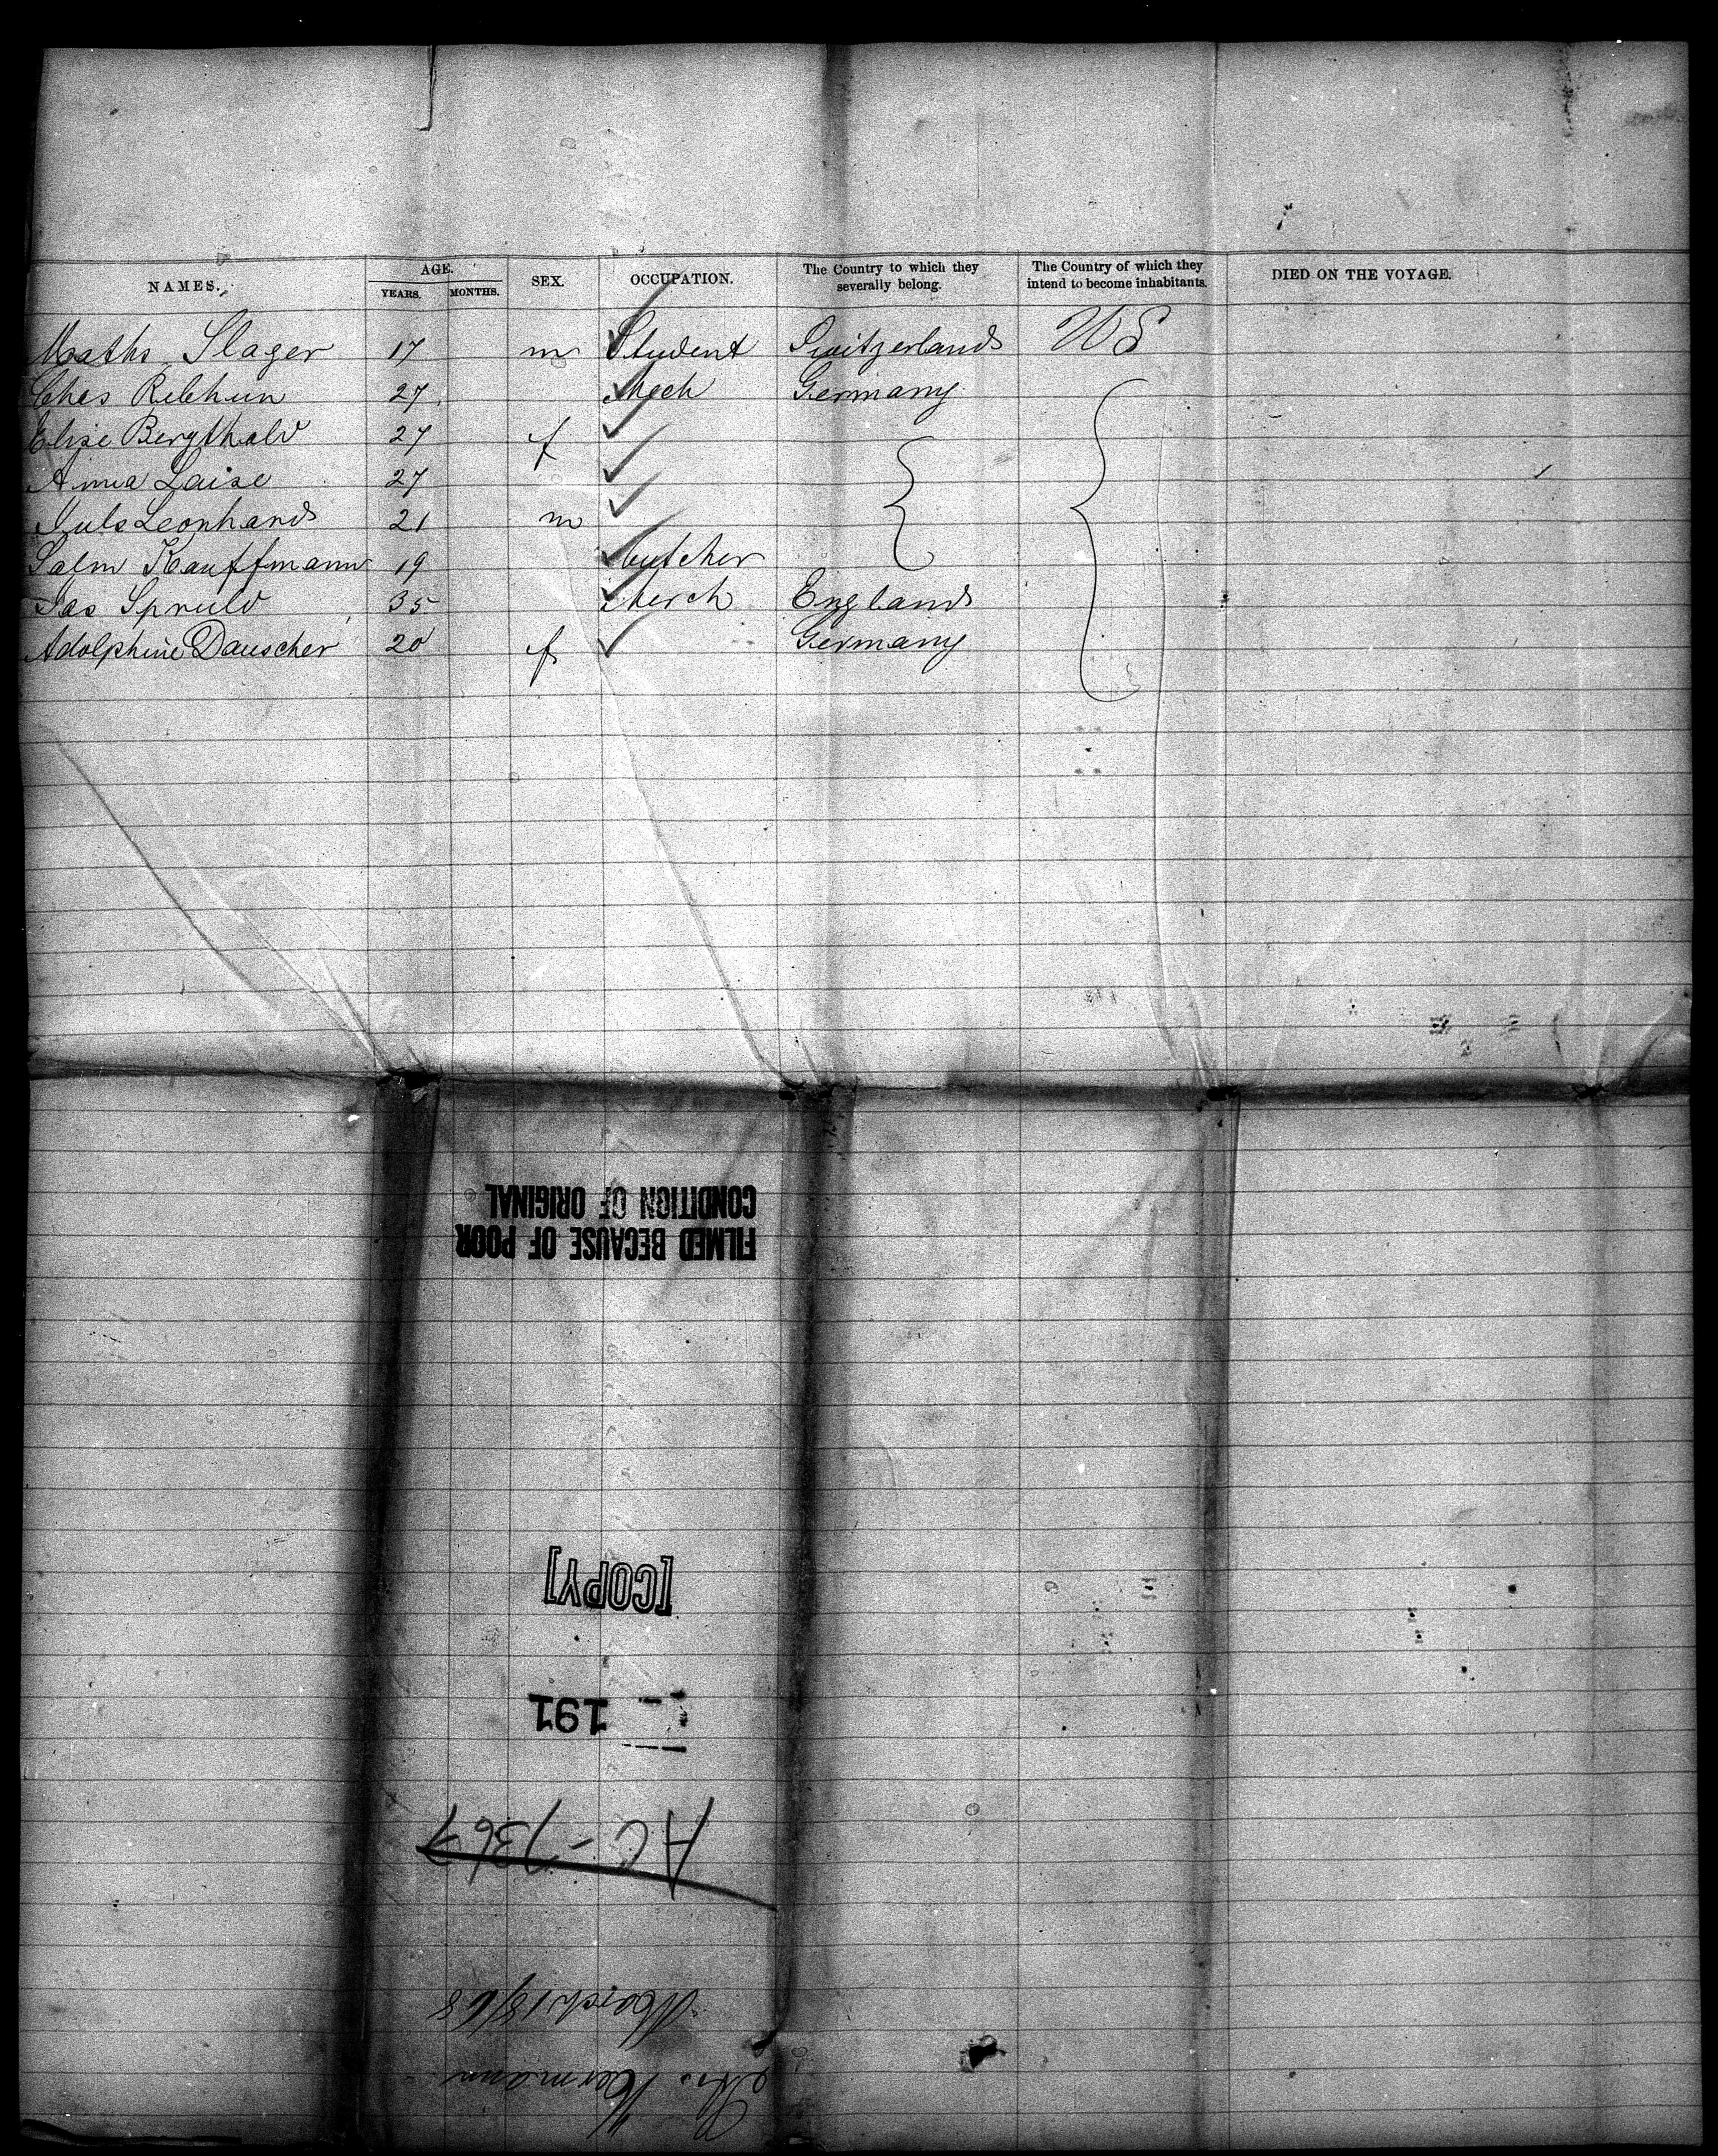 NAMES. AGE. YEARS. MONTHS. SEX. OCCUPATION. The Country to which they severally belong. The Country of which they intend to become inhabitants. DIED ON THE VOYAGE.
Maths Slager 17 m Student Switzerland US
Chas Rebhun 27 Mech Germany
Elise Bergthold 27 f
Anna Laise 27
Juls Leonhard 21 m
Salm Kauffmann 19 butcher
Jas 35 Merch England
Adolphine Dauscher 20 f Germany
FILMED BECAUSE OF POOR
CONDITION OF ORIGINAL
[COPY]
191
AC-7367
March 18/68
Str. Hermann